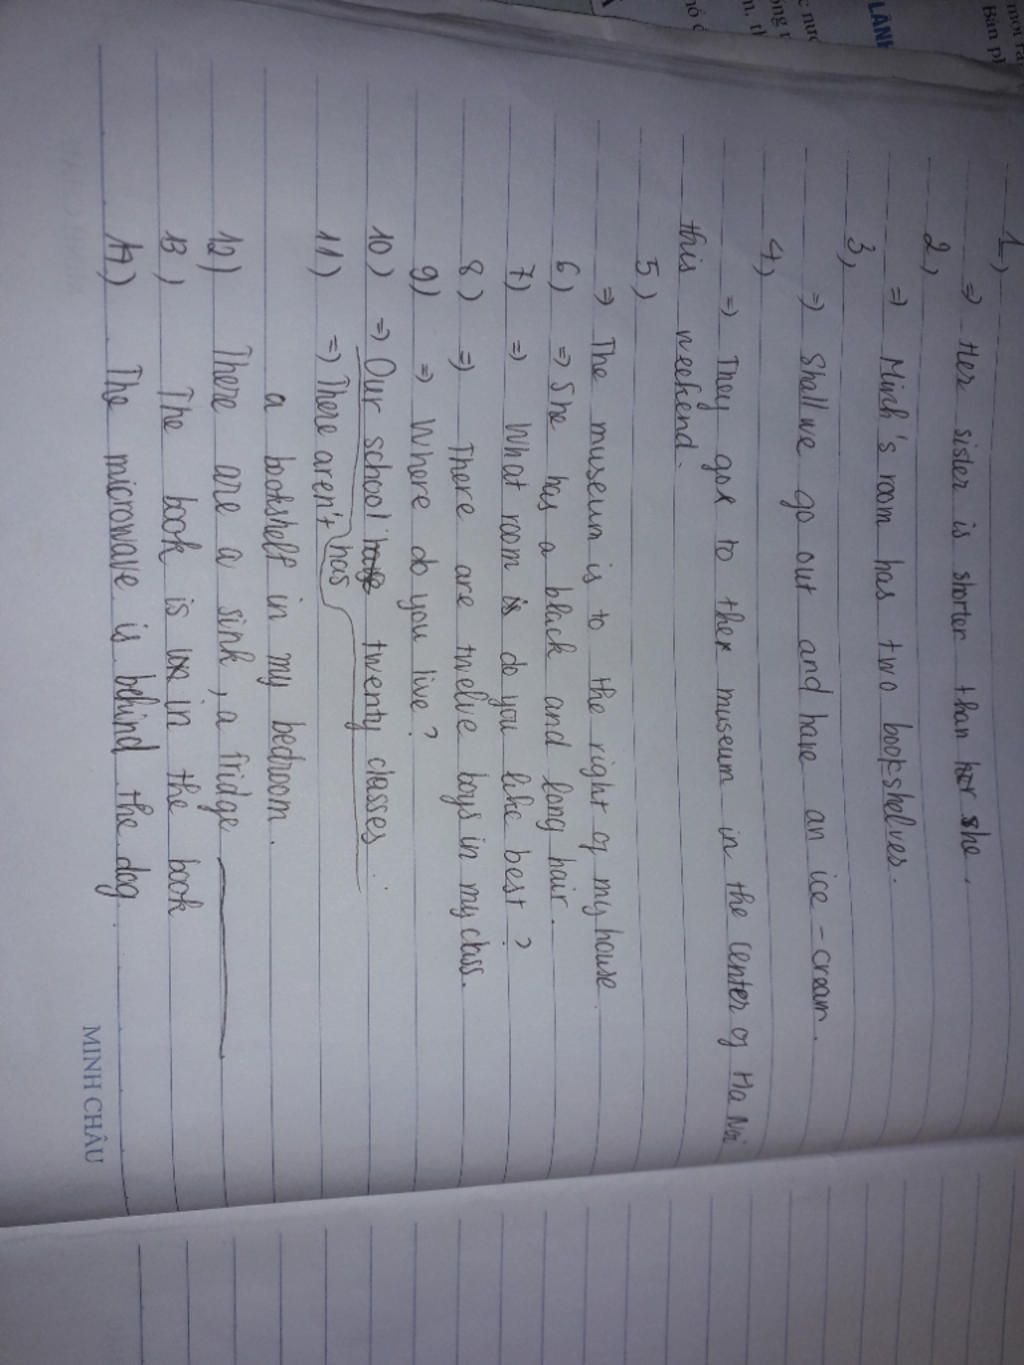 1,)
=) Her sister is shorter than she.
2,)
=) Minh's room has two bookshelves.
3,
=) Shall we go out and have an ice-cream.
4,)
=) They got to the museum in the center of Ha Noi
this weekend.
5,)
=) The museum is to the right of my house.
6,) =) She has a black and long hair.
7,) =) What room do you like best?
8,) =) There are twelve boys in my class.
9) =) Where do you live?
10,) =) Our school has twenty classes.
11) =) There aren't
a bookshelf in my bedroom.
12) There are a sink, a fridge
13,) The book is in the book
14,) The microwave is behind the dog.
MINH CHÂU
LÀNH